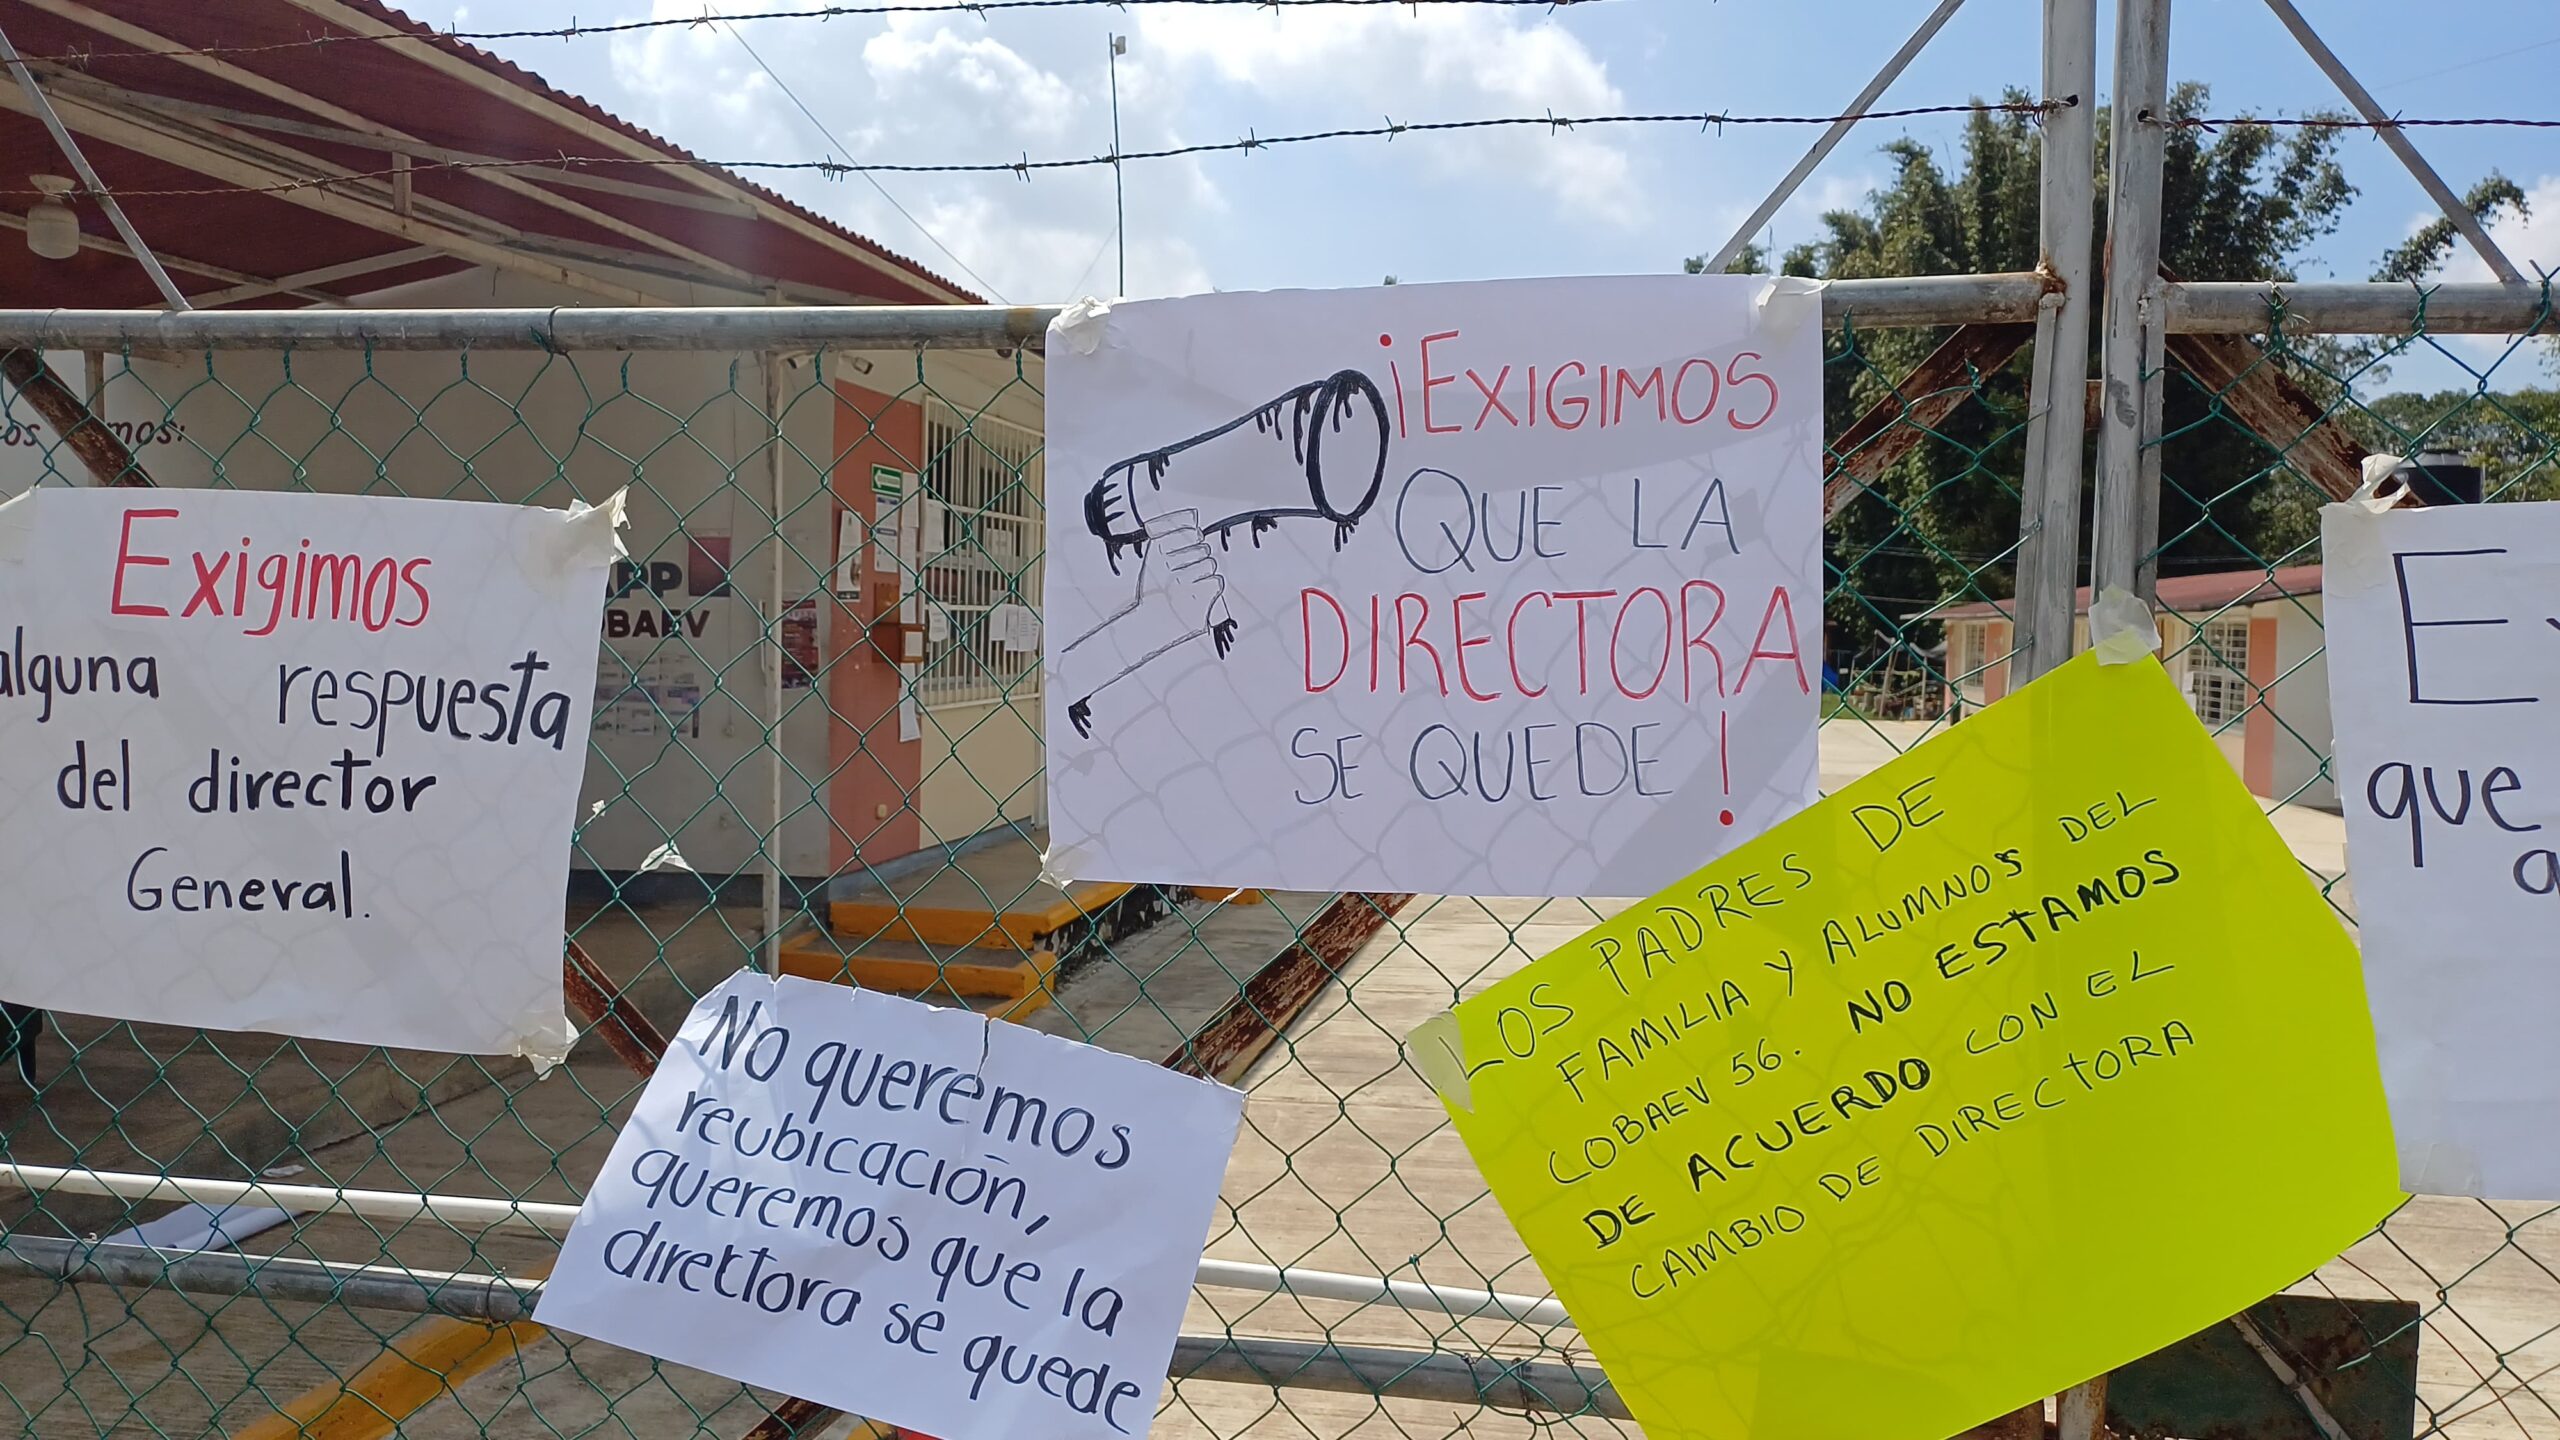 Exigimos
alguna respuesta
del director
General.
¡EXIGIMOS
QUE LA
DIRECTORA
SE QUEDE!
No queremos
reubicación,
queremos que la
directora se quede
LOS PADRES DE
FAMILIA Y ALUMNOS DEL
COBAEV 56. NO ESTAMOS
DE ACUERDO CON EL
CAMBIO DE DIRECTORA
que